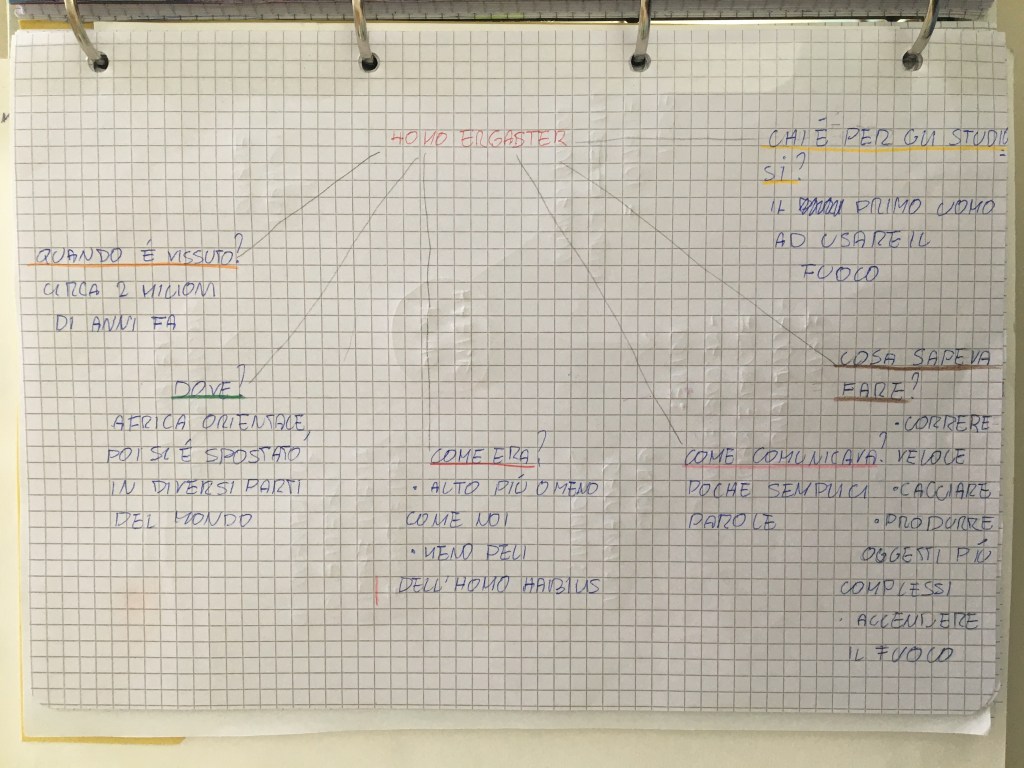 HOMO ERGASTER
CHI È PER GLI STUDIO
SI?
IL PRIMO UOMO
AD USARE IL
FUOCO
QUANDO É VISSUTO?
CIRCA 2 MILIONI
DI ANNI FA
DOVE?
AFRICA ORIENTALE,
POI SI É SPOSTATO
IN DIVERSI PARTI
DEL MONDO
COME ERA?
· ALTO PIÚ O MENO
COME NOI
· MENO PELI
DELL'HOMO HABILIS
COME COMUNICAVA?
POCHE SEMPLICI
PAROLE
COSA SAPEVA
FARE?
· CORRERE
VELOCE
· CACCIARE
· PRODURRE
OGGETTI PIÚ
COMPLESSI
· ACCENDERE
IL FUOCO